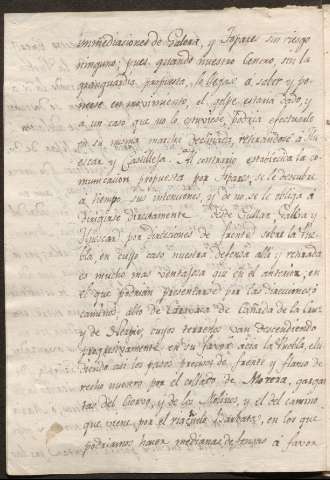 inmediaciones de Galera, y Topares sin riesgo
ninguno; pues quando nuestro Centro, sin la
granguardia propuesta, le llegase á saber y po-
nerse en movimiento, el golpe estaria dado, y
a un caso que no lo estuviese, podria efectuarlo
en su misma marcha retirandose á Hu-
escar y Castilleja. Al contrario establecida la co-
municacion propuesta por Topares, se le descubre
á tiempo sus intenciones, y se le obliga á
dirigirse directamente desde Cullar, Galera y
Huescar por direcciones de frente sobre la Pue-
bla, en cuyo caso nuestra defensa allí y retirada
es mucho mas ventajosa que en el anterior, en
el que podrian presentarse por las direcciones ó
caminos alto de Caravaca de Cañada de la Cruz
y de cuyos terrenos van descendiendo
progresivamente en su favor acia la Puebla, elu-
diendo asi los pasos precisos de frente y flanco de-
recho nuestro por el collado de Morera, gargan-
tas del Ciervo, y de los Molinos, y el del camino
que viene por el riachuelo Barbata, en los que
podriamos hacer medianas defensas á favor